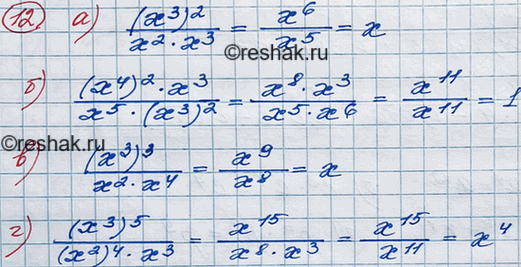 12. а) (x³)² / x² · x³ = x⁶ / x⁵ = x
©reshak.ru
б) (x⁴)² · x³ / x⁵ · (x³)² = x⁸ · x³ / x⁵ · x⁶ = x¹¹ / x¹¹ = 1
©reshak.ru
в) (x³)³ / x² · x⁴ = x⁹ / x⁸ = x
г) (x³)⁵ / (x²)⁴ · x³ = x¹⁵ / x⁸ · x³ = x¹⁵ / x¹¹ = x⁴